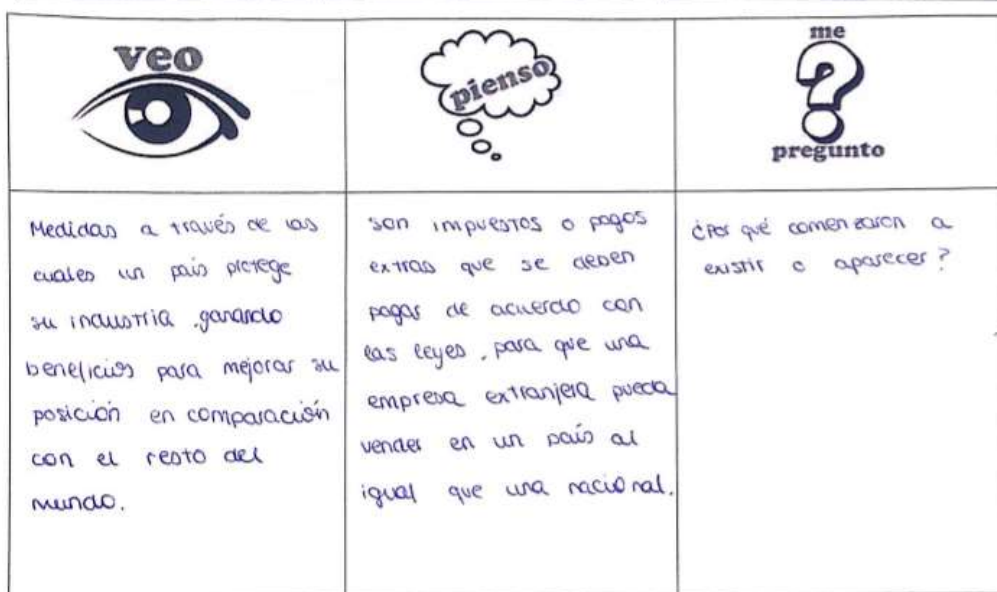 veo
Medidas a través de las
cuales un país protege
su industria, ganando
beneficios para mejorar su
posición en comparación
con el resto del
mundo.
pienso
son impuestos o pagos
extras que se deben
pagar de acuerdo con
las leyes, para que una
empresa extranjera pueda
vender en un país al
igual que una nacional.
me
pregunto
¿Por qué comenzaron a
existir o aparecer?